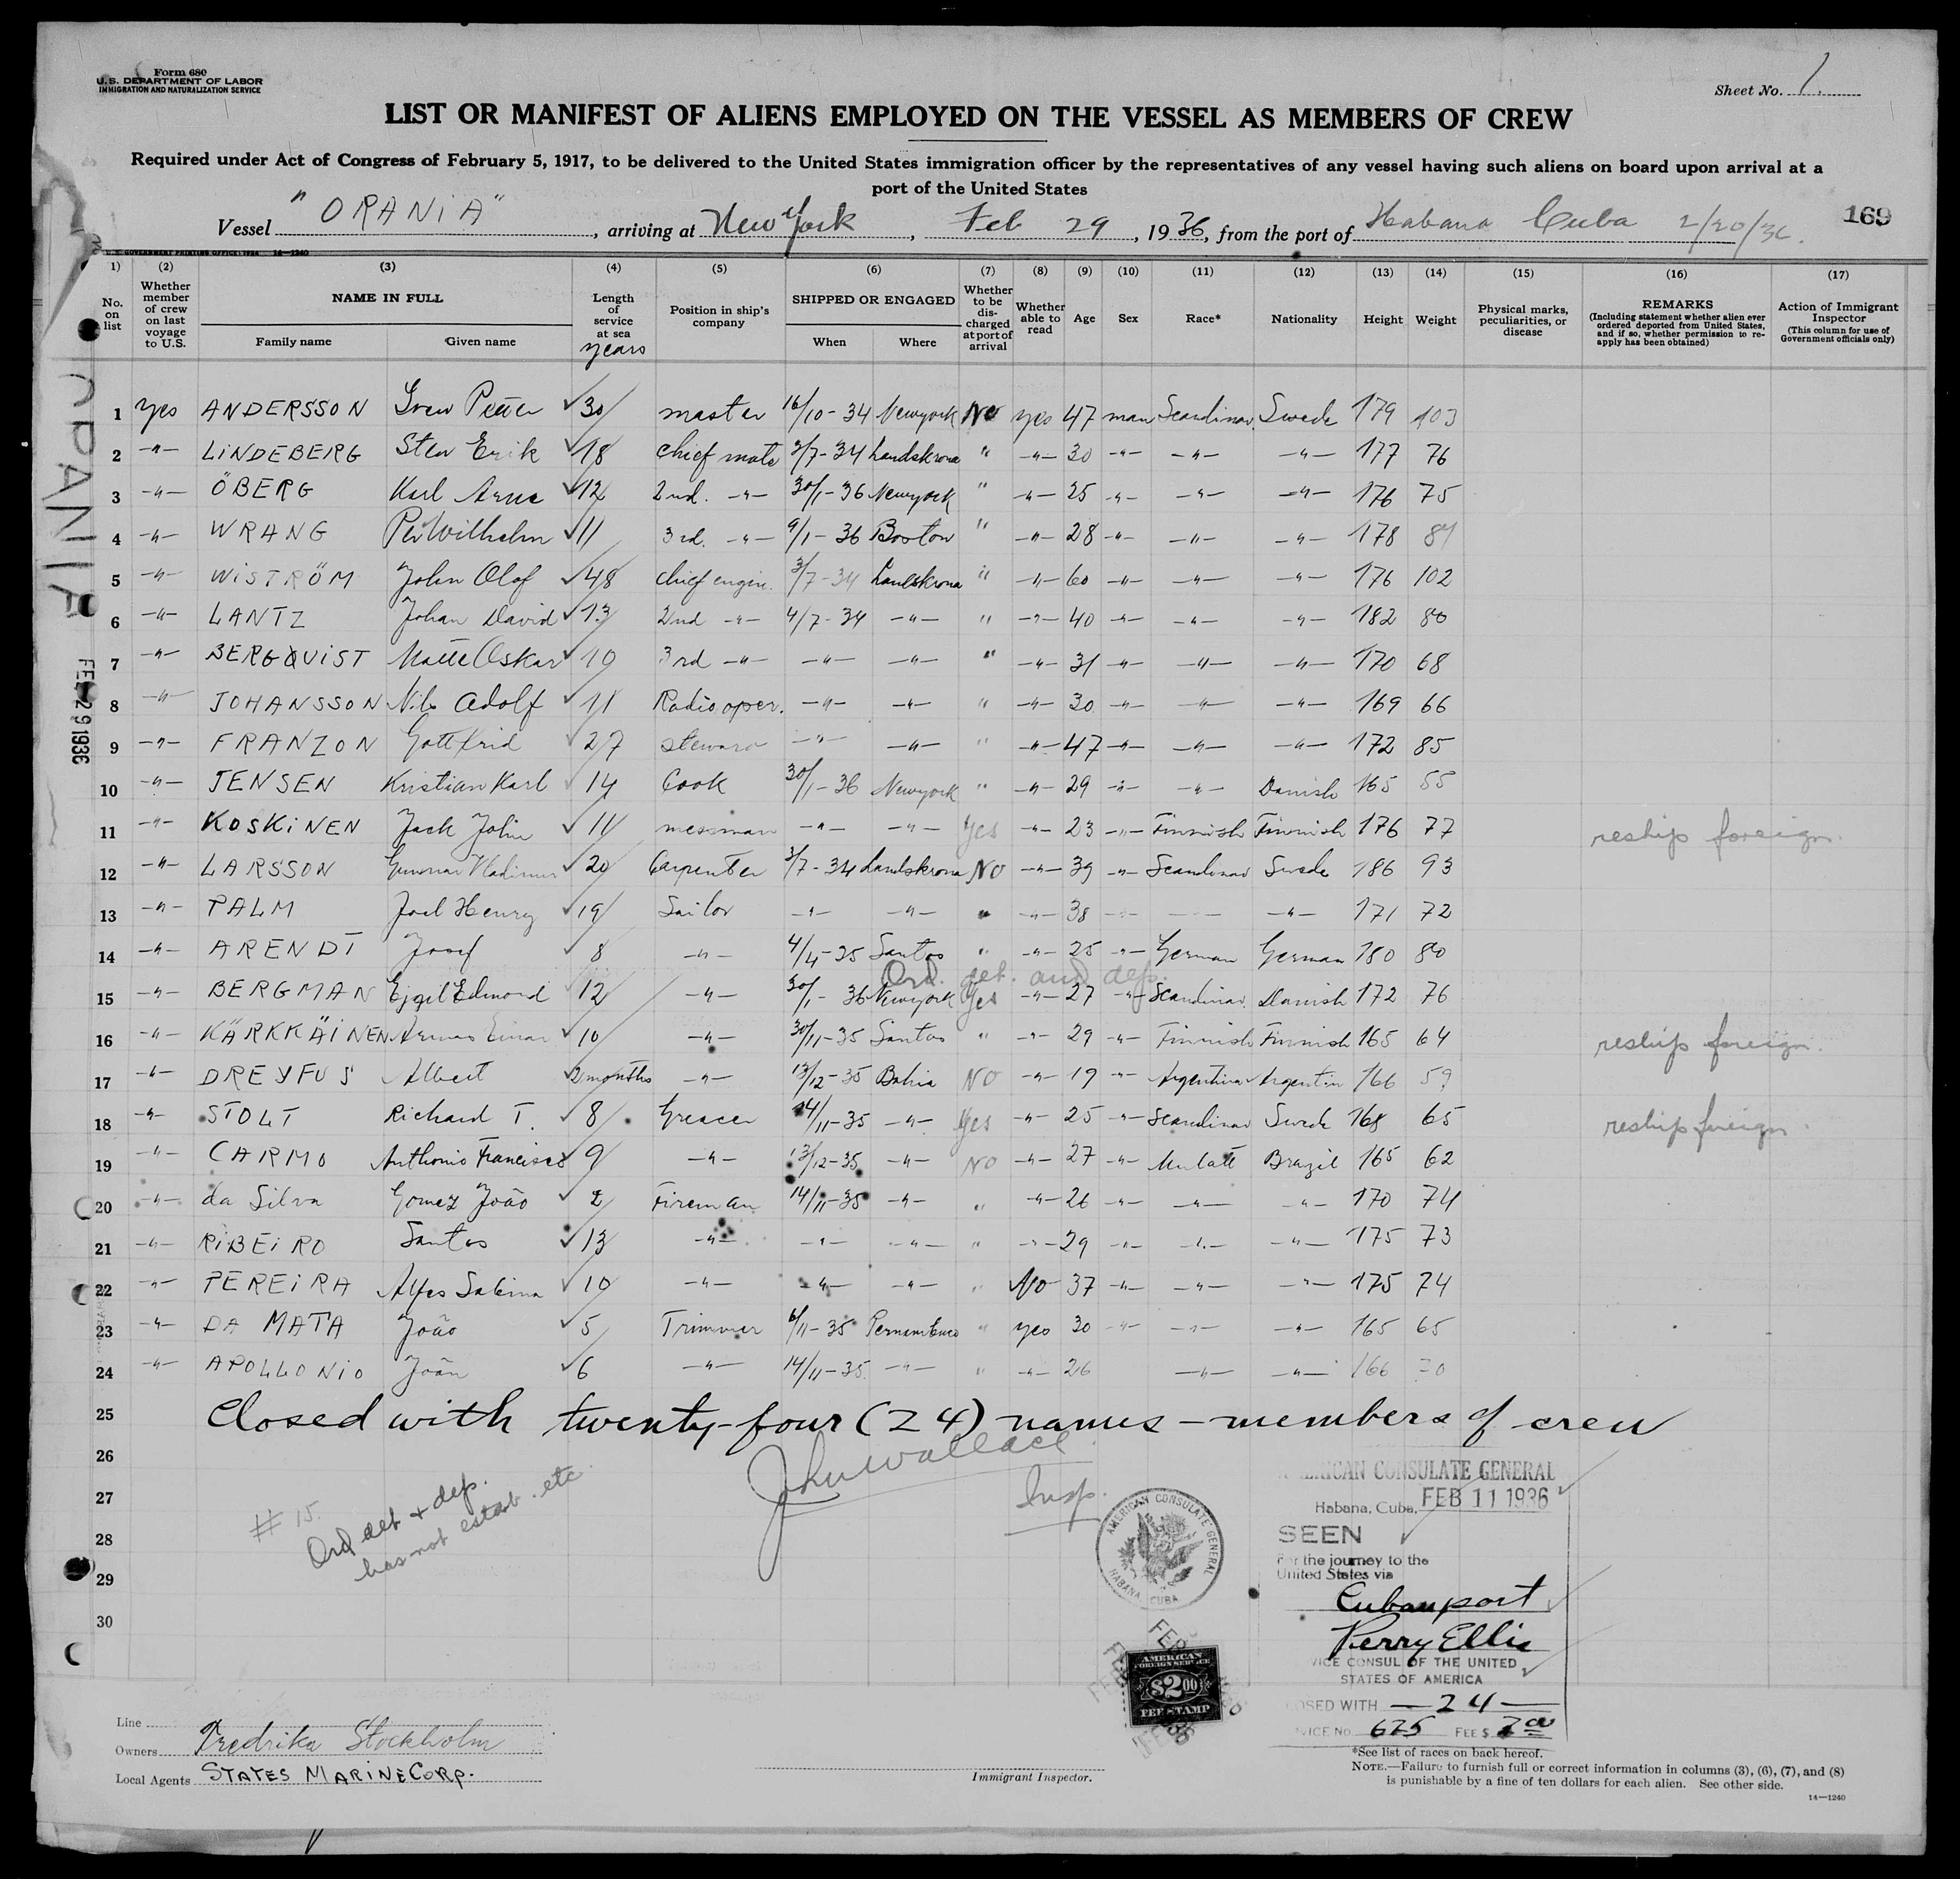 Form 680
U.S. DEPARTMENT OF LABOR
IMMIGRATION AND NATURALIZATION SERVICE
Sheet No. 1.
LIST OR MANIFEST OF ALIENS EMPLOYED ON THE VESSEL AS MEMBERS OF CREW
Required under Act of Congress of February 5, 1917, to be delivered to the United States immigration officer by the representatives of any vessel having such aliens on board upon arrival at a
port of the United States
Vessel "ORANIA", arriving at New York, Feb 29, 1936, from the port of Habana Cuba 2/20/36. 169
U.S. GOVERNMENT PRINTING OFFICE: 1934 14-1240
1) (2) (3) (4) (5) (6) (7) (8) (9) (10) (11) (12) (13) (14) (15) (16) (17)
No. on list
Whether member of crew on last voyage to U.S.
NAME IN FULL
Family name Given name
Length of service at sea
years
Position in ship's company
SHIPPED OR ENGAGED
When Where
Whether to be discharged at port of arrival
Whether able to read
Age Sex Race* Nationality Height Weight
Physical marks, peculiarities, or disease
REMARKS
(Including statement whether alien ever ordered deported from United States, and if so, whether permission to reapply has been obtained)
Action of Immigrant Inspector
(This column for use of Government officials only)
ORANIA
FEB 29 1936
1 Yes ANDERSSON Sven Petter 30 master 16/10-34 Newyork NO yes 47 man Scandinav. Swede 179 103
2 -"- LINDEBERG Sten Erik 18 chief mate 3/7-34 Landskrona " -"- 30 -"- -"- -"- 177 76
3 -"- ÖBERG Karl Arne 12 2nd. -"- 30/1-36 Newyork " -"- 25 -"- -"- -"- 176 75
4 -"- WRANG Per Wilhelm 11 3rd. -"- 9/1-36 Boston " -"- 28 -"- -"- -"- 178
5 -"- WISTRÖM John Olof 48 chief engin. 3/7-34 Landskrona " -"- 60 -"- -"- -"- 176 102
6 -"- LANTZ Johan David 13 2nd -"- 4/7-34 -"- " -"- 40 -"- -"- -"- 182 80
7 -"- BERGQUIST Oskar 19 3rd -"- -"- -"- " -"- 31 -"- -"- -"- 170 68
8 -"- JOHANSSON Nils Adolf 11 Radio oper. -"- -"- " -"- 30 -"- -"- -"- 169 66
9 -"- FRANZON Gottfrid 27 steward -"- -"- " -"- 47 -"- -"- -"- 172 85
10 -"- JENSEN Kristian Karl 14 Cook 30/1-36 Newyork " -"- 29 -"- -"- Danish 165 55
11 -"- KOSKINEN Jack John 11 messman -"- -"- Yes -"- 23 -"- Finnish Finnish 176 77 reship foreign.
12 -"- LARSSON Gunnar Vladimir 20 Carpenter 3/7-34 Landskrona NO -"- 39 -"- Scandinav Swede 186 93
13 -"- PALM Joel Henry 19 Sailor -"- -"- " -"- 38 -"- -"- -"- 171 72
14 -"- ARENDT Josef 8 -"- 4/4-35 Santos " -"- 25 -"- German German 180 80
Ord. det. and dep.
15 -"- BERGMAN Ejgil Edmond 12 -"- 30/1-36 Newyork Yes -"- 27 -"- Scandinav. Danish 172 76
16 -"- KÄRKKÄINEN Einar 10 -"- 30/11-35 Santos " -"- 29 -"- Finnish Finnish 165 64 reship foreign.
17 -"- DREYFUS Albert 2 months -"- 13/12-35 Bahia NO -"- 19 -"- Argentina Argentin 166 59
18 -"- STOLT Richard T. 8 Greacer 14/11-35 -"- Yes -"- 25 -"- Scandinav Swede 168 65 reship foreign.
19 -"- CARMO Anthonio Francisco 9 -"- 13/12-35 -"- NO -"- 27 -"- Mulatt Brazil 165 62
20 -"- da Silva Gomez João 2 Fireman 14/11-35 -"- " -"- 26 -"- -"- -"- 170 74
21 -"- RIBEIRO Santos 13 -"- -"- -"- " -"- 29 -"- -"- -"- 175 73
22 -"- PEREIRA Sabina 10 -"- -"- -"- " No 37 -"- -"- -"- 175 74
23 -"- DA MATA João 5 Trimmer 6/11-35 Pernambuco " yes 30 -"- -"- -"- 165 65
24 -"- APOLLONIO João 6 -"- 14/11-35. -"- " -"- 26 -"- -"- 166 70
25 Closed with twenty-four (24) names - members of crew
26
27
28
29
30
John Wallace
Insp.
# 15.
Ord det + dep.
has not estab. etc
AMERICAN CONSULATE GENERAL
Habana, Cuba, FEB 11 1936
SEEN
For the journey to the
United States via
Cuban port
Perry Ellis
VICE CONSUL OF THE UNITED
STATES OF AMERICA
CLOSED WITH — 24 —
SERVICE No. 625 FEE $ 2.00
AMERICAN CONSULATE GENERAL
HABANA, CUBA
AMERICAN
FOREIGN SERVICE
$2.00
FEE STAMP
Line
Owners Fredrika Stockholm
Local Agents STATES MARINE CORP.
Immigrant Inspector.
*See list of races on back hereof.
NOTE.—Failure to furnish full or correct information in columns (3), (6), (7), and (8)
is punishable by a fine of ten dollars for each alien. See other side.
14—1240